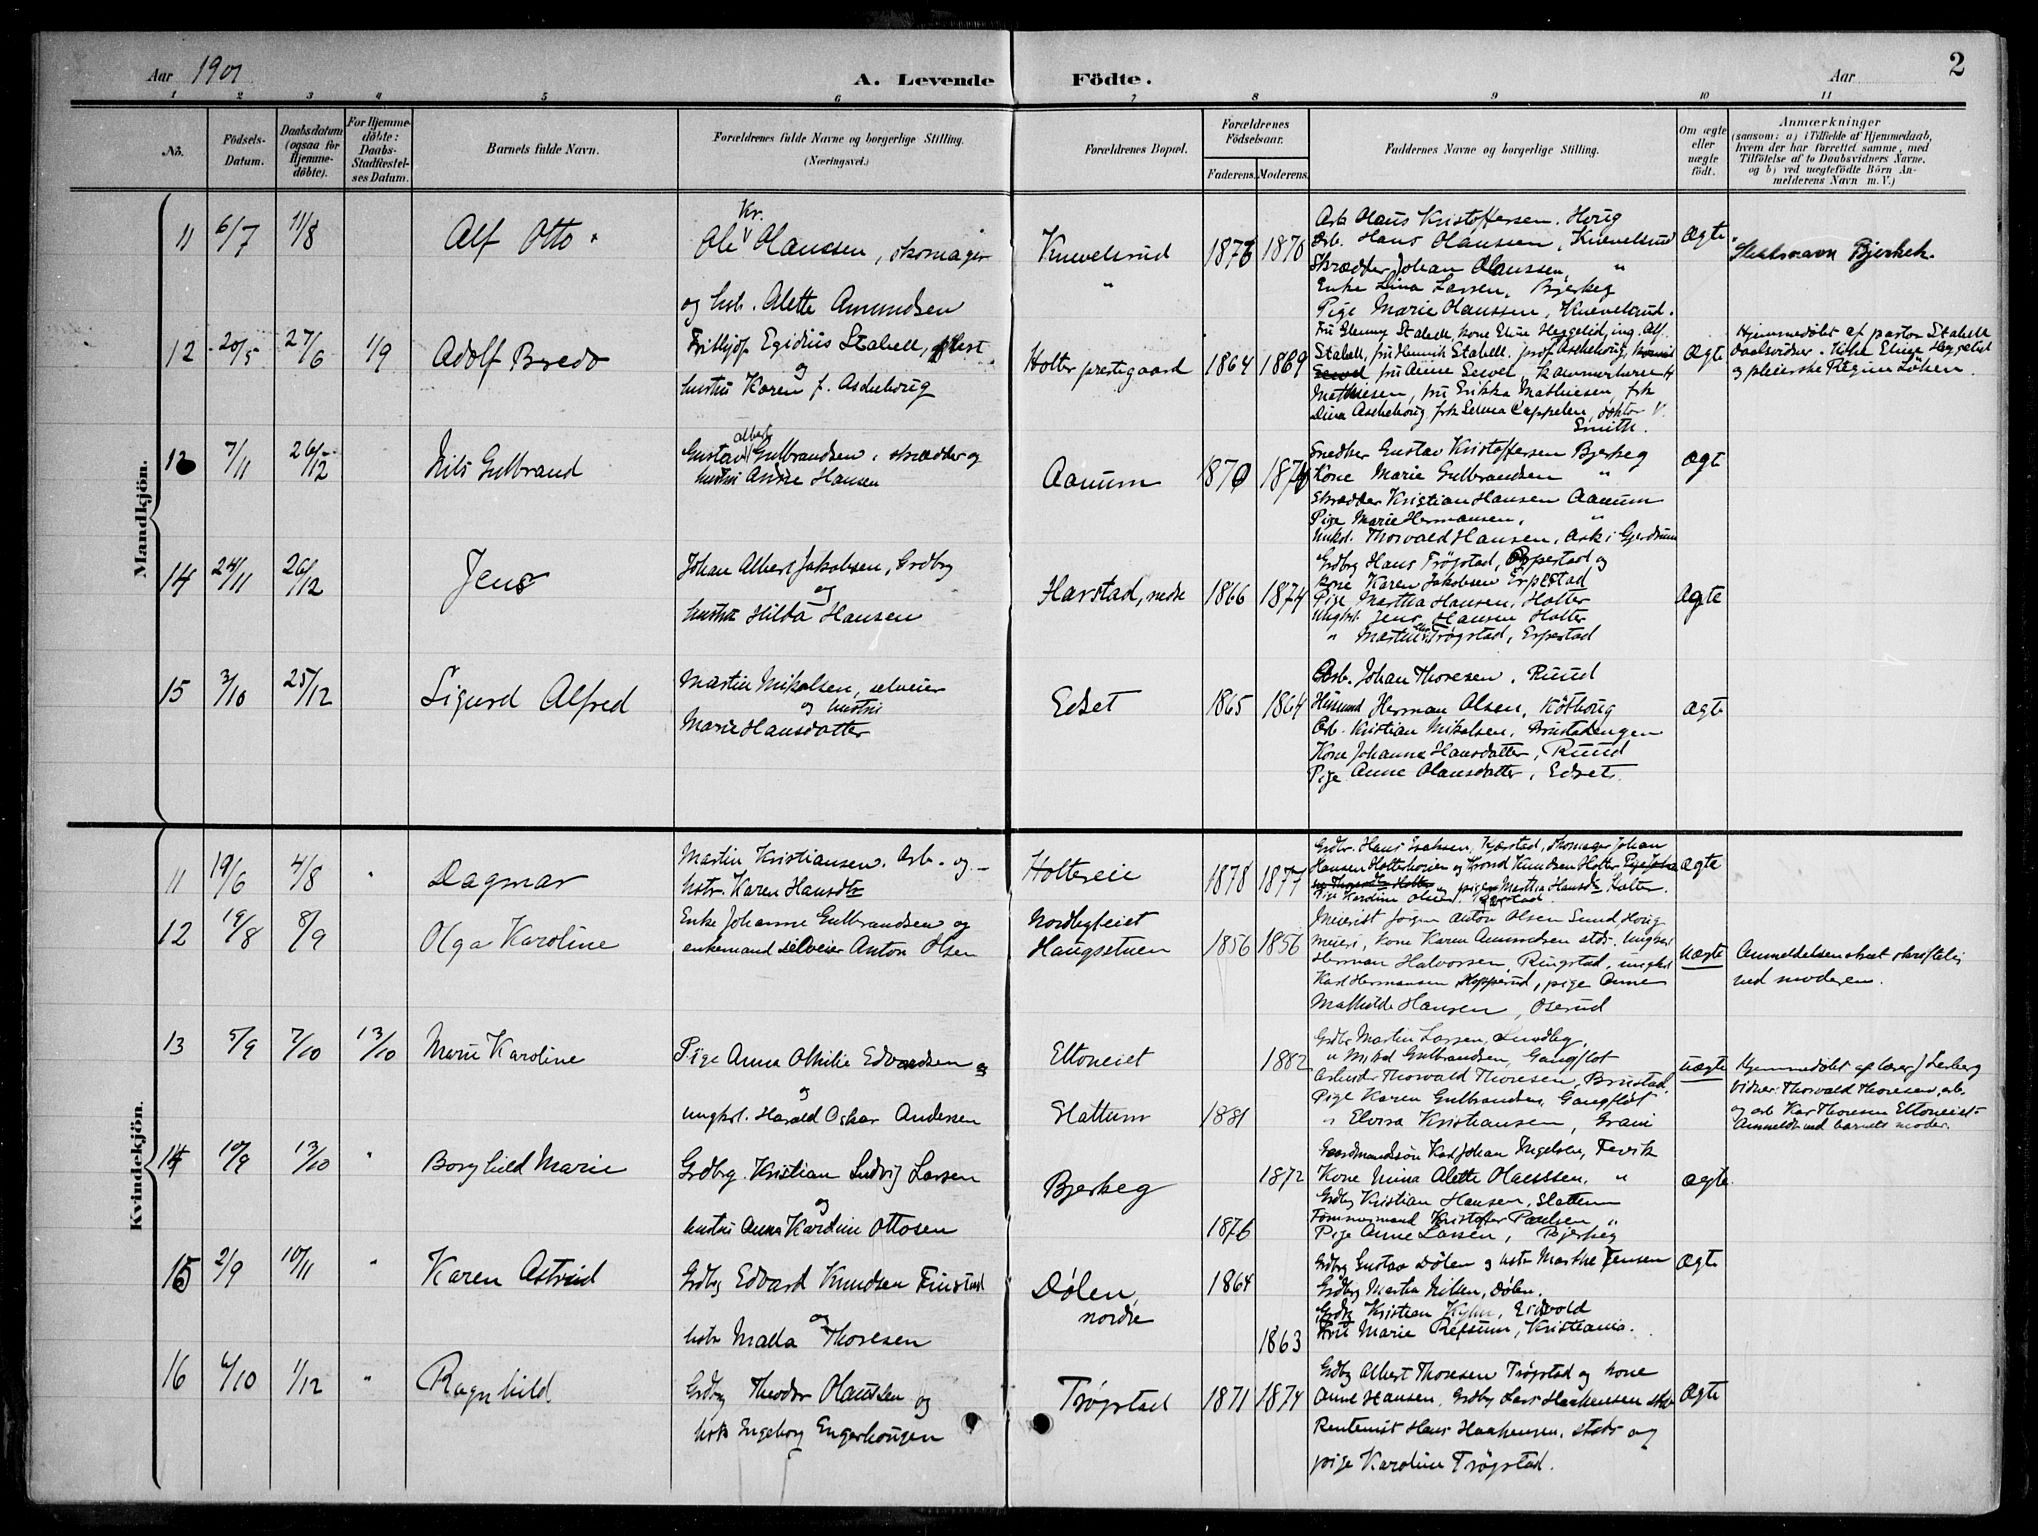 Aar 1901 A. Levende Födte. Aar 2
1 2 3 4 5 6 7 8 9 10 11
No. Födsels-Datum. Daabsdatum (ogsaa for Hjemmedöbte). For Hjemmedöbte: Daabs-Stadfæstelses Datum. Barnets fulde Navn. Forældrenes fulde Navne og borgerlige Stilling. (Næringsvei.) Forældrenes Bopæl. Forældrenes Födselsaar. Faderens. Moderens. Faddernes Navne og borgerlige Stilling. Om ægte eller uægte födt. Anmærkninger (saasom: a) i Tilfælde af Hjemmedaab, hvem der har forrettet samme, med Tilföielse af to Daabsvidners Navne. og b) ved uægtefödte Börn Anmelderens Navn m. V.)
Mandkjön.
11 6/7 11/8 Alf Otto
Kr.
Ole Olaussen, skomager
og hus. Alette Amundsen
Knevelsrud
"
1876 1870
Arb. Olaus Kristoffersen. Houg
Arb. Hans Olaussen, Knevelsrud
Skrædder Johan Olaussen, "
Enke Lina Larsen, Bjerkeg
Pige Marie Olaussen, Knevelsrud.
Ægte
Bjerkek.
12 20/5 27/6 1/9 Adolf Bredo
Frithjof Egidius Stabell, prest
og
hustru Karen f. Aschehoug
Holter prestegaard
1864 1869
Stabell, fru Henrik Stabell, prof. Aschehoug,
fru Anne
Mathiesen, fru Erikka Mathiesen, frk
Dina Aschehoug, frk Lerna Cappelen, doktor V.
Smith.
Ægte
Hjemmedøbt af pastor Stabell
og pleierske Regine Løken.
13 7/11 26/12 Nils Gulbrand
Albert
Gustav Gulbrandsen, skrædder og
hustru Andrine Hansen
Aanum
1870 1876
Snedker Gustav Kristoffersen Bjerkeg
Kone Marie Gulbrandsen "
Skrædder Kristian Hansen Aanum
Pige Marie Hermansen, "
Unkl. Thorvald Hansen, Ask i Gjerdrum
Ægte
14 24/11 26/12 Jens
Johan Albert Jakobsen, Grdbr
og
hustru Hilda Hansen
Harstad, nedre
1866 1874
Grdbr Hans Trøgstad, Erpestad og
kone Karen Jakobsen Erpestad
Pige Martha Hansen, Holter
Ungkl. Jens Hansen Holter
" Martin Trøgstad, Erpestad
Ægte
15 3/10 25/12 Sigurd Alfred
Martin Mikalsen, selveier
og hustru
Marie Hansdatter
Edset
1865 1864
Arb. Johan Thoresen, Ruud
Husmd Herman Olsen, Kølhoug
Arb. Kristian Mikalsen, Brustadengen
Kone Johanne Hansdatter, Ruud
Pige Anne Olausdatter, Edset.
Ægte
Kvindekjön.
11 19/6 4/8 " Dagmar
Martin Kristiansen. Arb. og
hstr. Karen Hansdtr
Holtereie
1878 1877
Grdbr. Hans Isaksen, Kjærstad, Skomager Johan
Hansen Holterhoien og Trond Knudsen Holter
og pige Martha Hansdtr Holter.
Ægte
12 19/8 8/9 Olga Karoline
Enke Johanne Gulbrandsen og
enkemand selveier Anton Olsen
Nordbyeiet
Haugstuen
1856 1856
Meierist Jørgen Anton Olsen Sund Houg
meieri, kone Karen Amundsen stds. Ungkarl
Herman Halvorsen, Ringstad, ungkl
Karl Hermansen Hopperud, pige Anne
Mathilde Hansen, Oserud
Uægte
Anmeldelsen skeet skriftelig
ved moderen.
13 5/9 7/10 13/10 Marie Karoline
Pige Anna Othilie Edvardsen og
og
ungkrl. Harald Oskar Andersen
Eltoneiet
Elattum
1882
1881
Grdbr Martin Larsen, Lundby,
" Mikal Gulbrandsen, Gangflot
Arbeider Thorvald Thoresen, Brustad
Pige Karen Gulbrandsen, Gangflot
" Elvira Kristiansen, Grain
Uægte
Hjemmedøbt af lærer J Lerberg
Vidner: Thorvald Thoresen, arb.
og arb. Kar Thoresen Eltoneiet
Anmeldt ved barnets moder.
14 10/9 13/10 " Borghild Marie
Grdbrg. Kristian Ludvig Larsen
og
hustru Anna Karoline Ottosen
Bjerkeg
1872
1876
Gaardmandssøn Karl Johan Ingelsen, Fevik
Kone Mina Alette Olaussen, "
Grdbr Kristian Hansen, Slattum
Tømmermand Kristoffer Paulsen "
Pige Anne Larsen, Bjerkeg
Ægte
15 2/9 10/11 " Karen Astrid
Grdbr Edvard Knudsen Finstad
og
hstr Malla Thoresen
Dølen
nordre
1864
1863
Grdbr Gustav Dølen og hstr Marthe Jensen
Grdbr Martin Nilsen, Dølen.
Grdbr Kristian Kyhn, Eidsvold
Fru Marie Refsum, Kristiania.
Ægte
16 6/10 1/12 " Ragnhild
Grdbr Theodor Olaussen og
hstr Ingeborg Engerhougen
Trøgstad
1871 1874
Grdbr Albert Thoresen Trøgstad og kone
Anne Hansen, Grdbr Lars Haakensen stds
Rentenist Hans Haakensen, stds og
pige Karoline Trøgstad.
Ægte